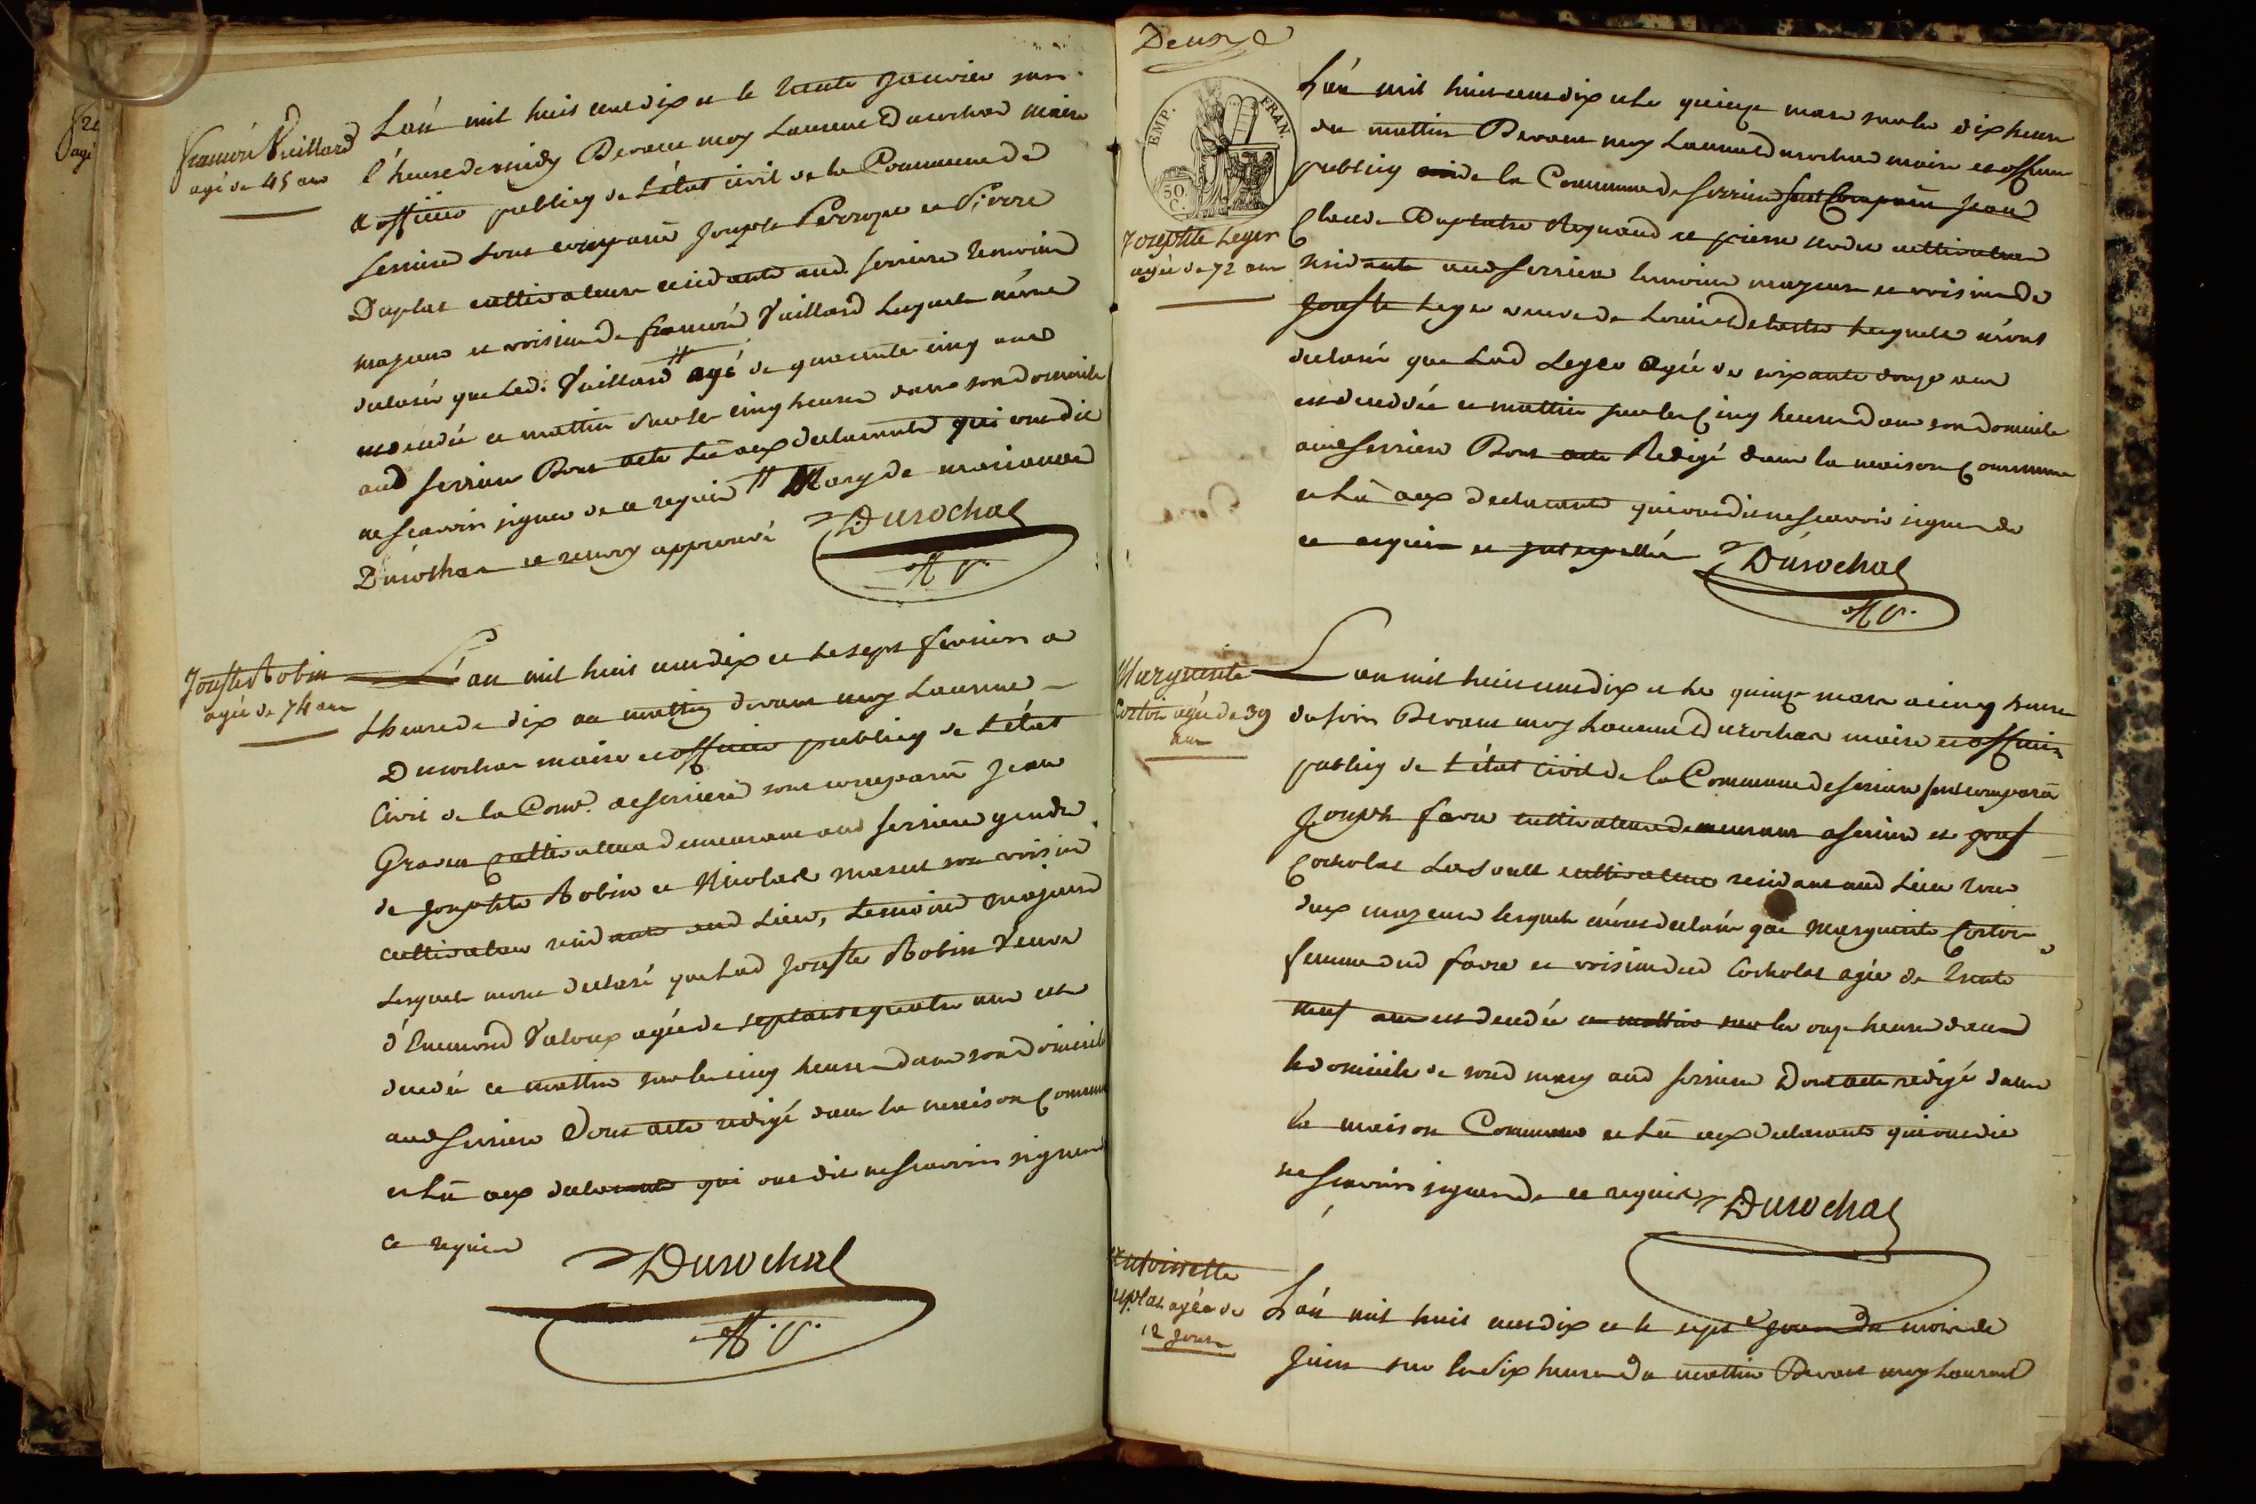 françois Vuillard
agé de 45 ans
L'an mil huit cent dix et le trente Janvier sur
l'heure de midy Devant moy Laurent Durochat maire
et officier publicq de l'état civil de la Commune de
serriere sont comparu Joseph Perroque et Pierre
Duplat cultivateurs residants aud. serriere temoins
majeurs et voisins de françois Vuillard Lesquels m'ont
declaré que Led. Vuillard # agé de quarante cinq ans
est decedé ce mattin sur les cinq heures dans son domicile
aud serriere Dont acte Lû aux declarants qui ont dit
ne sçavoir signer de ce requis # Mary de marianne
Durochat ce renvoy approuvé Durochat
Josephte Robin
agée de 74 ans
L'an mil huit cent dix et le sept fevrier a
Lheure de dix au mattin devant moy Laurent
Durochat maire et officier publicq de L'état
Civil de la Com.e de serriere sont comparu Jean
Graven Cultivateur demeurant aud serriere gendre
de Josephte Robin et Nicolas masset son voisin
cultivateur residants aud Lieu, temoins majeurs
Lesquels m'ont declaré que Lad Josephte Robin Veuve
d'Enemond Valoux agée de septante quatre ans est
decedée ce mattin sur les cinq heures dans son domicile
aud serriere Dont acte redigé dans la maison Commune
et Lû aux declarants qui ont dit ne sçavoir signer de
ce requis
Durochat
Deux
EMP. FRAN.
50 C.
Josephte Leger
agée de 72 ans
L'an mil huit cent dix et le quinze mars sur les dix heures
du mattin Devant moy Laurent Durochat maire et officier
publicq de la Commune de serriere sont Comparu Jean
Claude Duplatre Reynaud et pierre cultivateurs
residants aud serriere temoins majeurs et voisins de
Josephte Leger veuve de Louis Delastre Lesquels m'ont
declaré que Lad Leger agée de soixante douze ans
est decedée ce mattin sur les Cinq heures dans son domicile
aud serriere Dont acte Redigé dans la maison Commune
et Lû aux declarants qui ont dit ne sçavoir signer de
ce requis et
Durochat
Marguerite
Cortoir agée de 39
ans
L'an mil huit cent dix et le quinze mars a cinq heures
du soir Devant moy Laurent Durochat maire et officier
publicq de L'état Civil de la Commune de serriere sont comparu
Joseph favre cultivateur demeurant a serriere et
Cocholat cultivateur residant aud Lieu tous
deux majeurs lesquels m'ont declaré que Marguerite Cortoir
femme dud favre et voisine dud Cocholat agée de trente
neuf ans est decedée ce mattin sur les onze heures dans
le domicile de sond mary aud serriere Dont acte redigé dans
la maison Commune et Lû aux declarants qui ont dit
ne sçavoir signer de ce requis Durochat
Antoinette
Duplat agée de
12 Jours
L'an mil huit cent dix et le sept.e jour du mois de
Juin sur les dix heures du mattin Devant moy Laurent